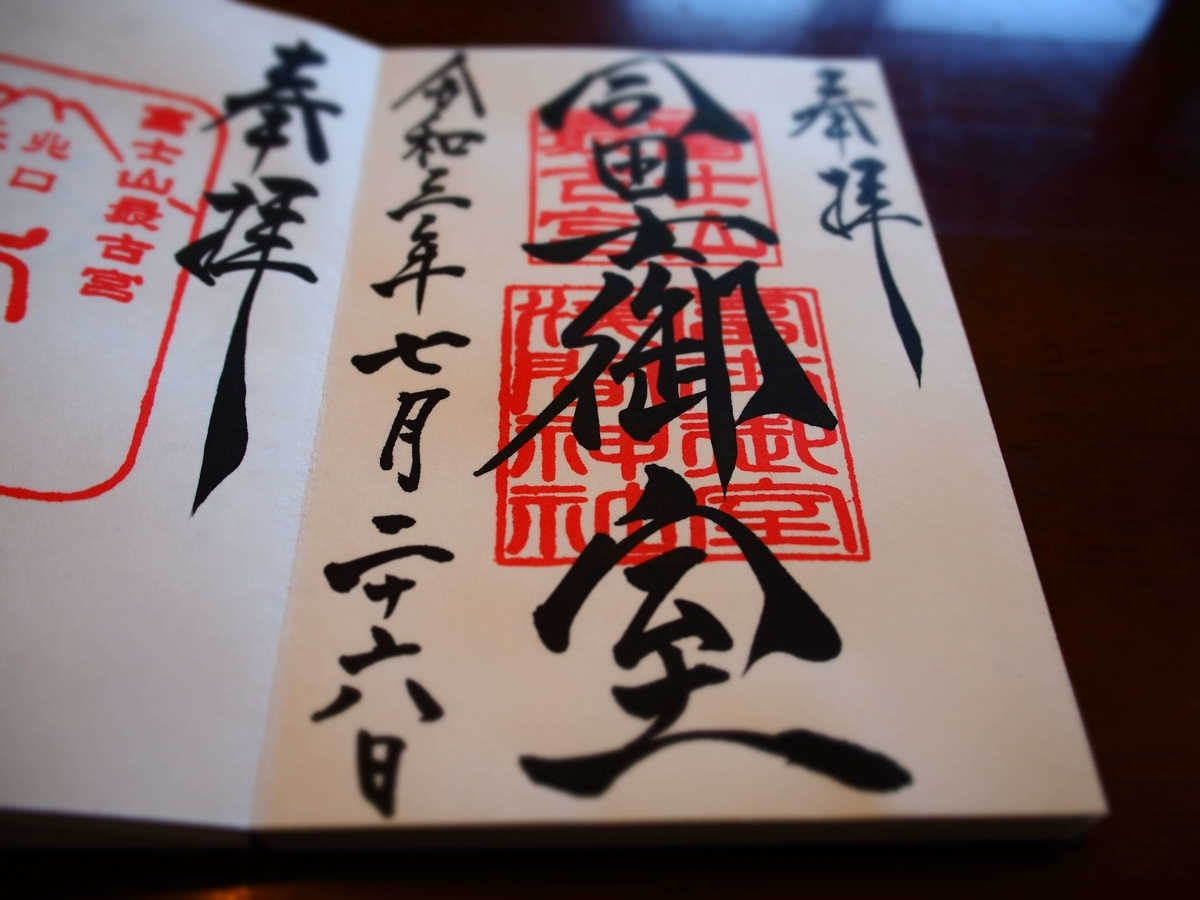 奉拝
冨士御室
富士山
最古宮
冨士御室
浅間神社
令和三年七月二十六日
奉拝
富士山最古宮
北口